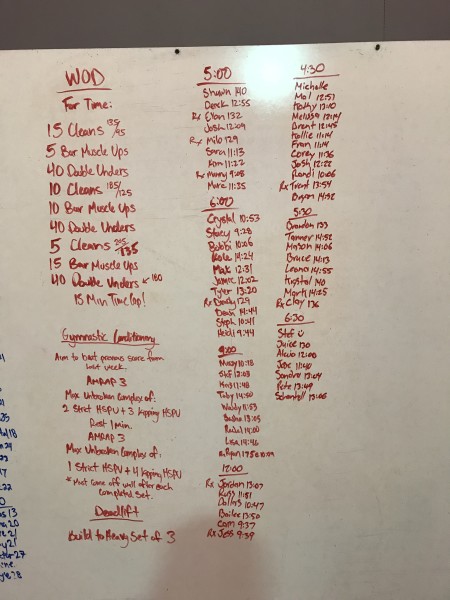 WOD
For Time:
15 Cleans 135/95
5 Bar Muscle Ups
40 Double Unders
10 Cleans 185/125
10 Bar Muscle Ups
40 Double Unders
5 Cleans 205/135
15 Bar Muscle Ups
40 Double Unders ← 180
15 Min Time Cap!
Gymnastic Conditioning
Aim to beat previous score from
last week.
AMRAP 3
Max Unbroken Complex of:
2 Strict HSPU + 3 Kipping HSPU
Rest 1 min.
AMRAP 3
Max Unbroken Complex of:
1 Strict HSPU + 4 Kipping HSPU
* Must come off wall after each
Completed Set.
Deadlift
Build to Heavy Set of 3
5:00
Shawn 140
Derek 12:55
Rx Evan 132
Josh 12:09
Rx Milo 129
Sara 11:13
Kim 11:22
Rx Manny 9:08
Marc 11:35
6:00
Crystal 10:53
Stacy 9:28
Bobbi 10:06
Kole 14:24
Mak 12:31
Jamie 12:02
Tyler 13:20
Rx Brady 129
Dean 14:44
Steph 10:41
Heidi 9:44
9:00
Missy 10:18
Stef 12:08
Kris 11:48
Toby 14:50
Wendy 11:53
Sasha 13:05
Rachel 14:00
Lisa 14:46
Rx Ryan
12:00
Rx Jordan 13:07
Russ 11:51
Dallas 10:47
Bailee 13:50
Cam 9:37
Rx Jess 9:39
4:30
Michelle
Mal 12:57
Kathy 13:10
Melissa 12:14
Brent 12:45
Hollie 11:14
Fran 11:14
Corey 11:36
Josh 12:22
Randi 10:06
Rx Trent 13:54
Bryan 14:52
5:30
Brandon 133
Tanner 14:52
Mason 14:06
Bruce 14:13
Leana 14:55
Krystal 140
Mark 14:25
Rx Clay 136
6:30
Stef
Juice 130
Alexio 12:00
Jose 11:40
Sandra 13:04
Pete 13:49
Schantell 13:06